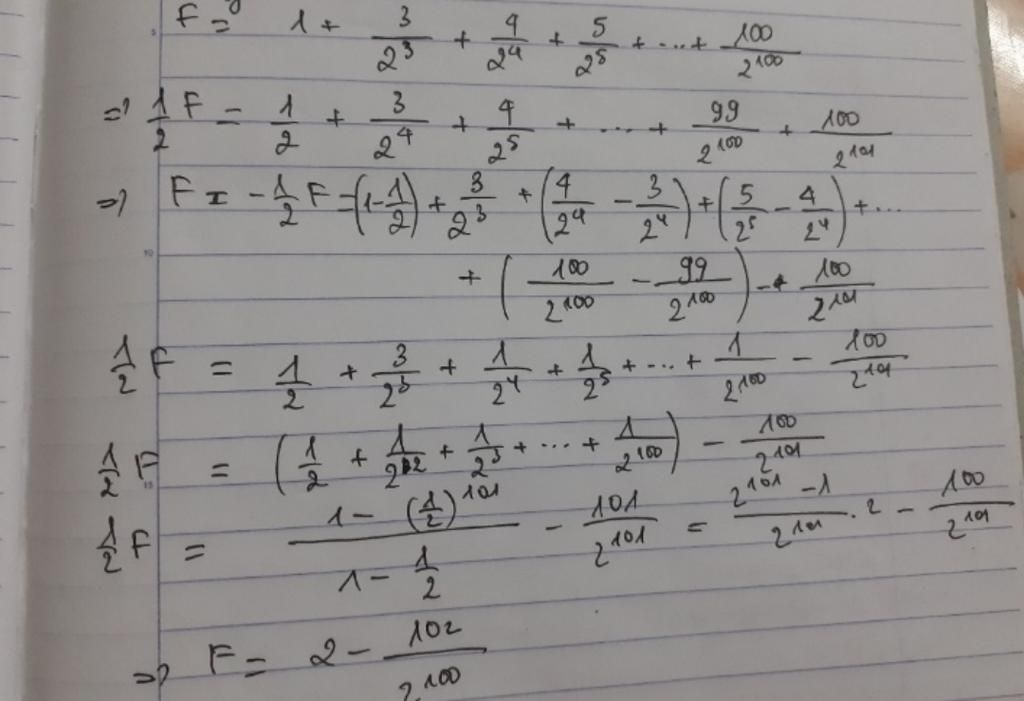 F = 1 + 3/2^3 + 4/2^4 + 5/2^5 + ... + 100/2^100
=> 1/2 F = 1/2 + 3/2^4 + 4/2^5 + ... + 99/2^100 + 100/2^101
=> F = - 1/2 F = (1 - 1/2) + 3/2^3 + (4/2^4 - 3/2^4) + (5/2^5 - 4/2^4) + ...
+ (100/2^100 - 99/2^100) - 100/2^101
1/2 F = 1/2 + 3/2^3 + 1/2^4 + 1/2^5 + ... + 1/2^100 - 100/2^101
1/2 F = (1/2 + 1/2^2 + 1/2^3 + ... + 1/2^100) - 100/2^101
1/2 F = (1 - (1/2)^101)/(1 - 1/2) - 101/2^101 = (2^101 - 1)/2^101 . 2 - 100/2^101
=> F = 2 - 102/2^100